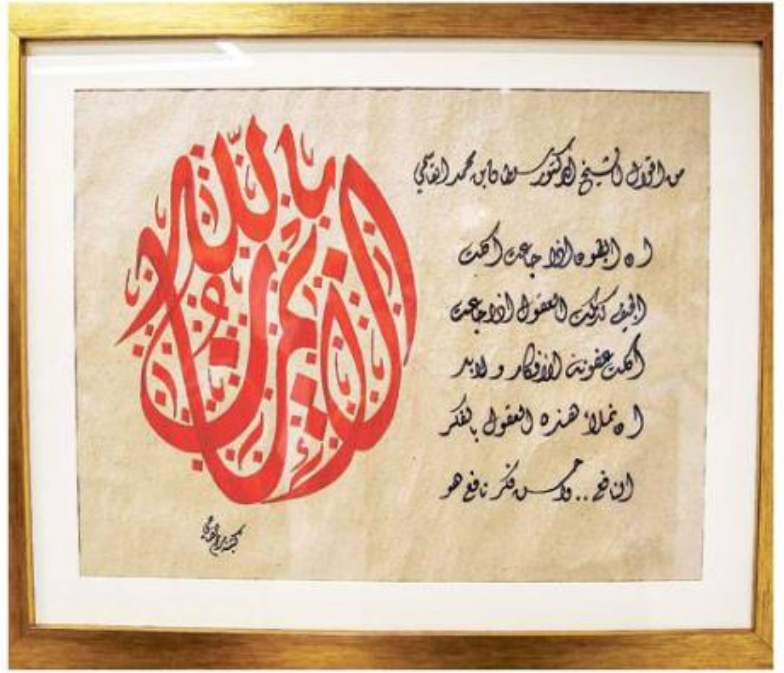 من اقوال الشيخ الدكتور سلطان بن محمد القاسمي
ان البطون اذا جاعت أكلت
الجيف كذلك العقول اذا جاعت
أكلت عفونة الأفكار و لابد
ان نملأ هذه العقول بالفكر
النافع .. وأحسن فكر نافع هو
الايمان بالله